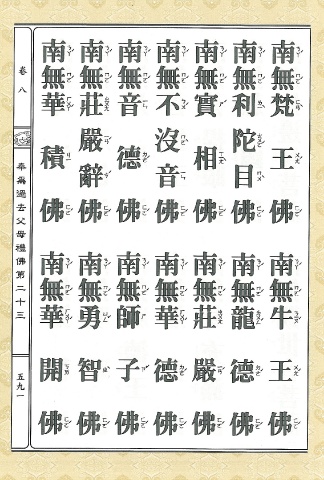 南無梵王佛　南無牛王佛
南無利陀目佛　南無龍德佛
南無實相佛　南無莊嚴佛
南無不沒音佛　南無華德佛
南無音德佛　南無師子佛
南無莊嚴辭佛　南無勇智佛
南無華積佛　南無華開佛
卷八　奉為過去父母禮佛第二十三　五九一